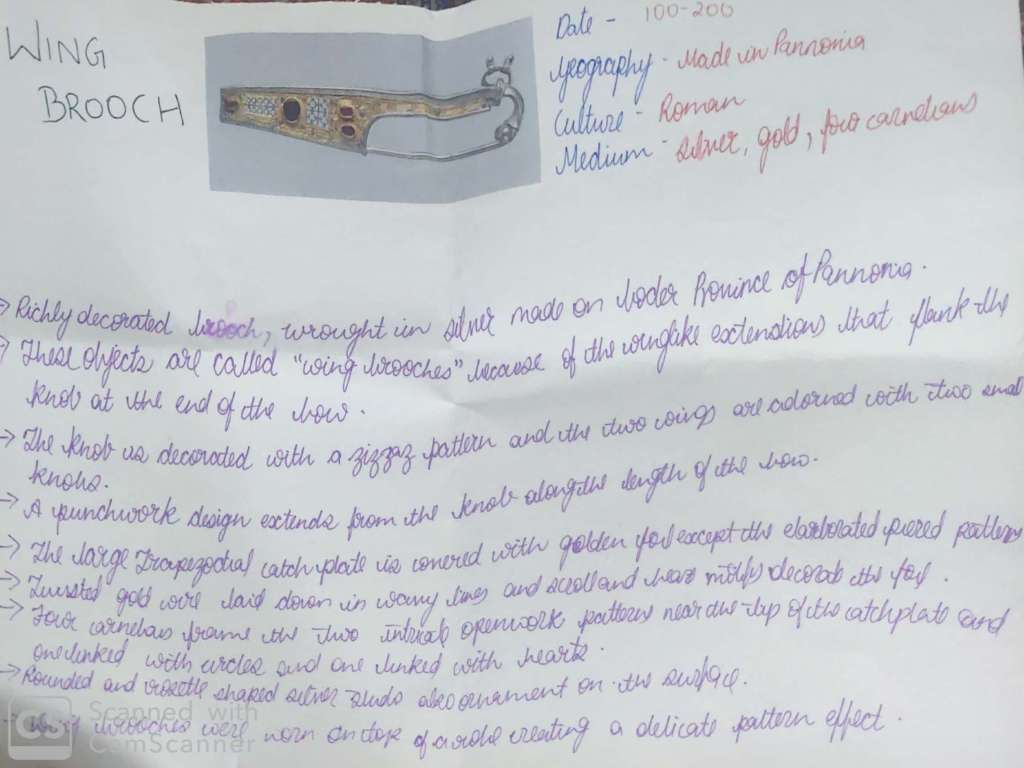 WING
BROOCH
Date - 100-200
Geography - Made in Pannonia
Culture - Roman
Medium - silver, gold, four carnelians
→ Richly decorated brooch, wrought in silver made on boder Province of Pannonia.
→ These objects are called "wing brooches" because of the winglike extensions that flank the
knob at the end of the bow.
→ The knob is decorated with a zizzaz pattern and the two wings are adorned with two small
knobs.
→ A punchwork design extends from the knob along the length of the bow.
→ The large Trapezodial catch plate is covered with golden foil except the elarborated pierced pattern
→ Twisted gold wire laid down in wavy lines and scroll and heart motifs decorate the foil.
→ Four carnelians frame the two openwork patterns near the tip of the catchplate and
one linked with circles and one linked with hearts.
→ Rounded and rosette shaped silver studs also ornament on the surface.
→ brooches were worn on top of creating a delicate pattern effect.
Scanned with
CamScanner